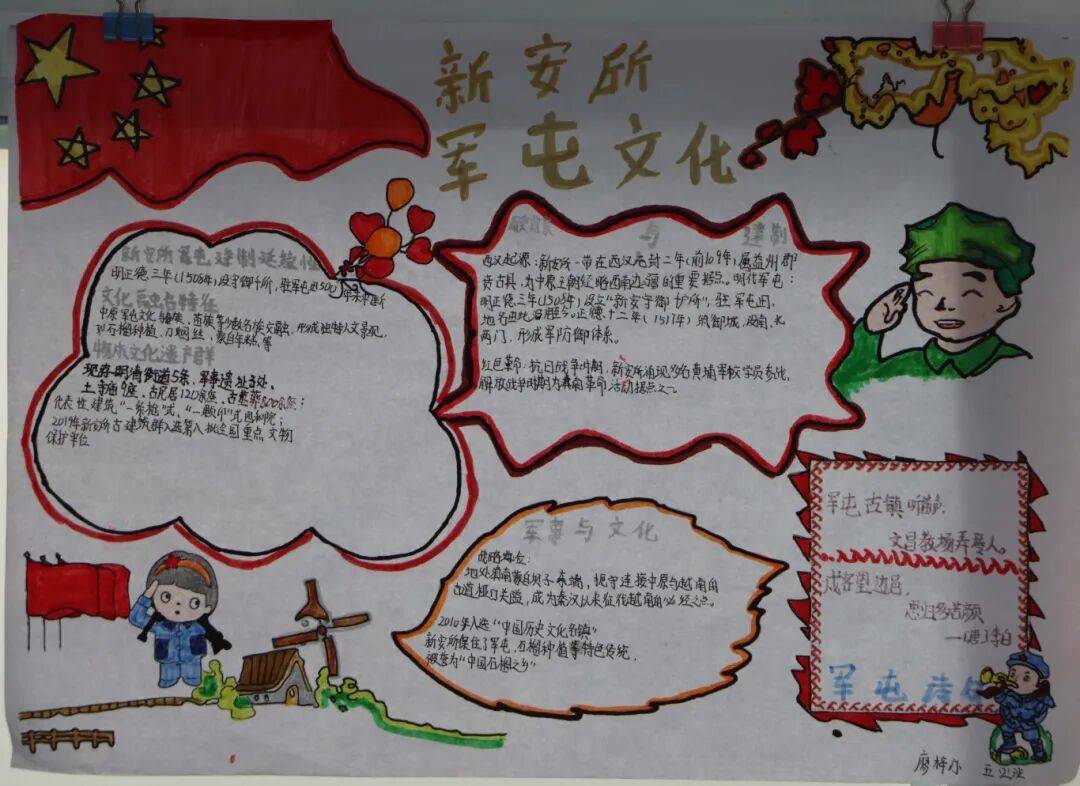 新安所
军屯文化
新安所军屯建制延续性
明正德三年(1508年)设守御千所,驻军屯田500年未中断
文化
中原军屯文化
对石榴种植、刀烟丝、
物质文化遗产群
现存明清街道5条,军事遗址3处,
土寺庙9座,古民居120余座,古墓葬500余座;
代表性建筑“一条枪”式、“一颗印”式四和院;
2019年新安所古建筑群入选第八批全国重点文物
保护单位
与 建制
西汉起源:新安所一带在西汉元封二年(前109年)属益州郡
贲古县,为中原王朝经略西南边疆的重要据点。明代军屯:
明正德三年(1508年)设立“新安守御护所”,驻军屯田,
地名由此沿用至今。正德十二年(1517年)筑御城,设南、北
两门,形成军防御体系。
红色革命:抗日战争时期,新安所涌现39名黄埔军校学员参战,
解放战争时期为滇南革命活动据点之一。
军事与文化
战略地位:
地处滇南蒙自坝子东端,扼守连接中原与越南角
古道桠口关隘,成为秦汉以来征伐越南角必经之点。
2010年入选“中国历史文化名镇”
新安所保住了军屯,石榴种植等特色传统,
被誉为“中国石榴之乡”
军屯古镇听笛声,
文昌教场弄晏人。
戍客望边邑,
思归多苦颜
——(唐)李白
军屯诗
廖梓